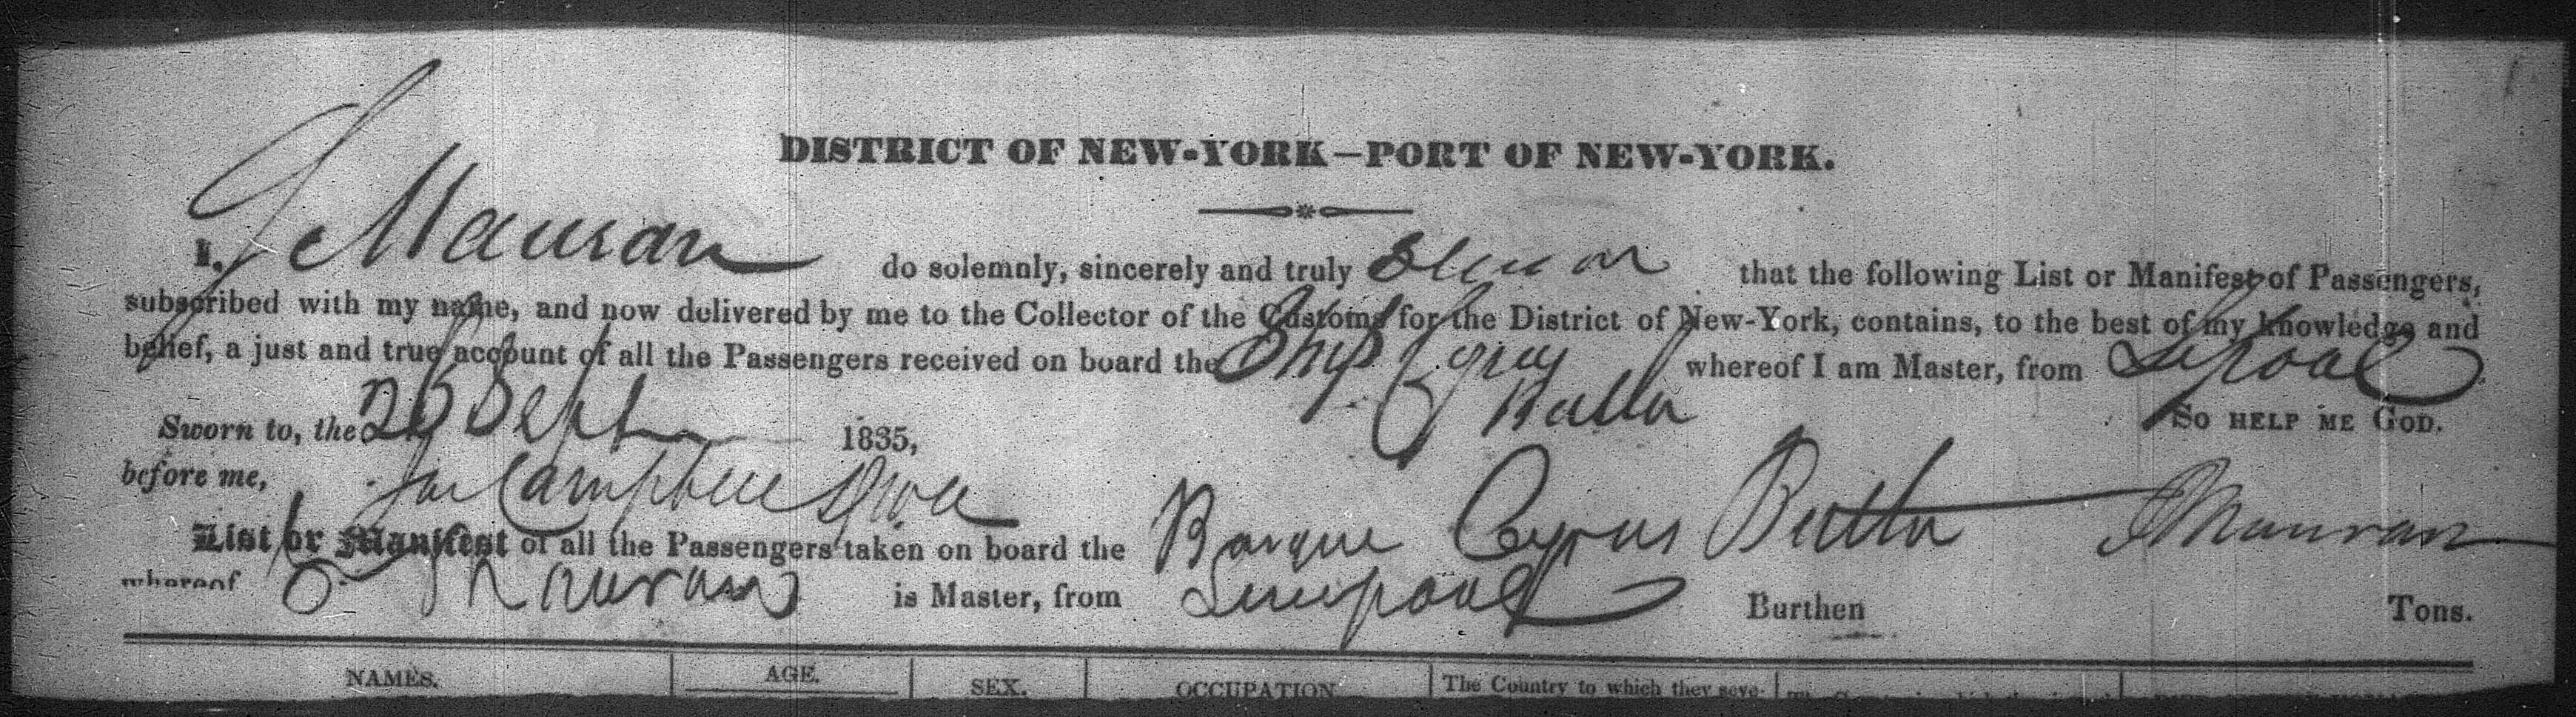 DISTRICT OF NEW-YORK—PORT OF NEW-YORK.
I, Mauran do solemnly, sincerely and truly Swear that the following List or Manifest of Passengers,
subscribed with my name, and now delivered by me to the Collector of the Customs for the District of New-York, contains, to the best of my knowledge and
belief, a just and true account of all the Passengers received on board the Ship Cyrus Butler whereof I am Master, from Lpool
So HELP ME GOD.
Sworn to, the 26 Sept 1835,
before me, Campbell
Mauran
List or Manifest of all the Passengers taken on board the Barque Cyrus Butler
whereof Mauran is Master, from Liverpool Burthen Tons.
NAMES. AGE. SEX. OCCUPATION The Country to which they seve-